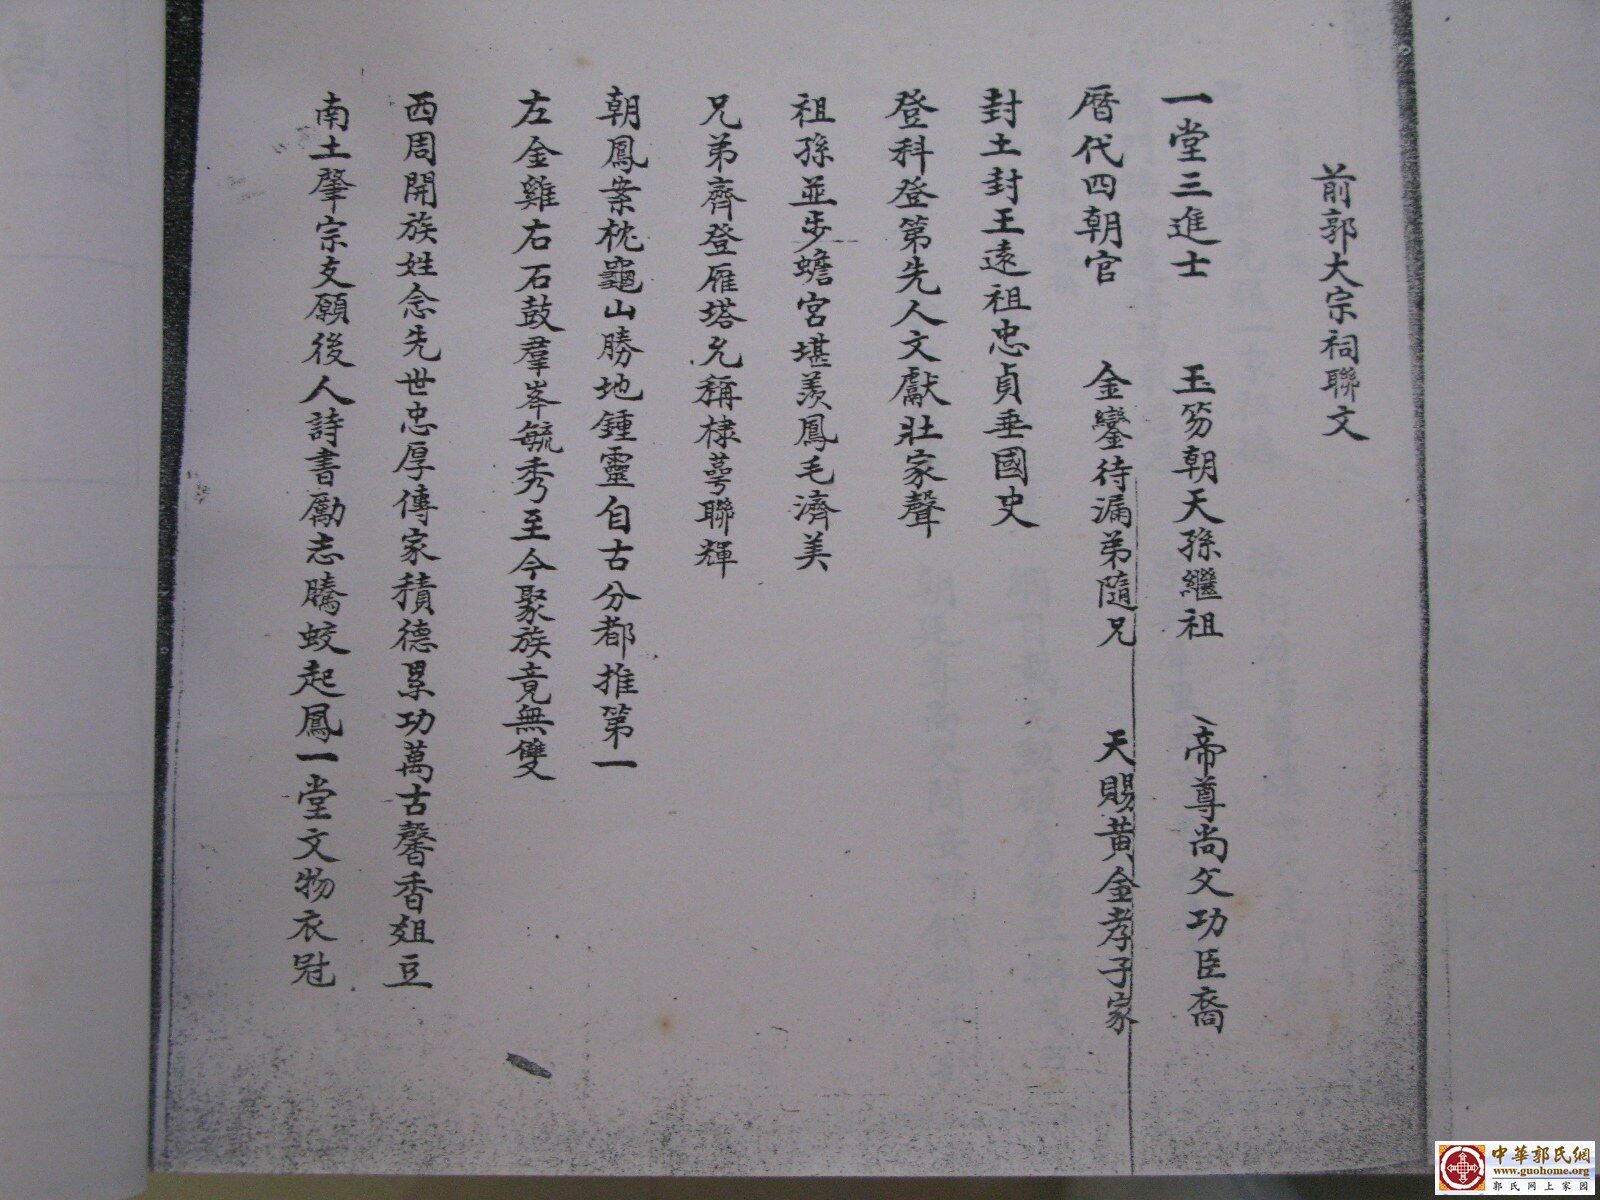 前郭大宗祠聯文
一堂三進士　玉笏朝天孫繼祖　帝尊尚父功臣裔
曆代四朝官　金鑾待漏弟隨兄　天賜黃金孝子家
封土封王遠祖忠貞垂國史
登科登第先人文獻壯家聲
祖孫並步蟾宮堪羨鳳毛濟美
兄弟齊登雁塔允稱棣萼聯輝
朝鳳案枕龜山勝地鍾靈自古分都推第一
左金雞右石鼓羣峯毓秀至今聚族竟無雙
西周開族姓念先世忠厚傳家積德累功萬古馨香俎豆
南土肇宗支願後人詩書勵志騰蛟起鳳一堂文物衣冠
中華郭氏網
www.guohome.org
郭氏网上家园